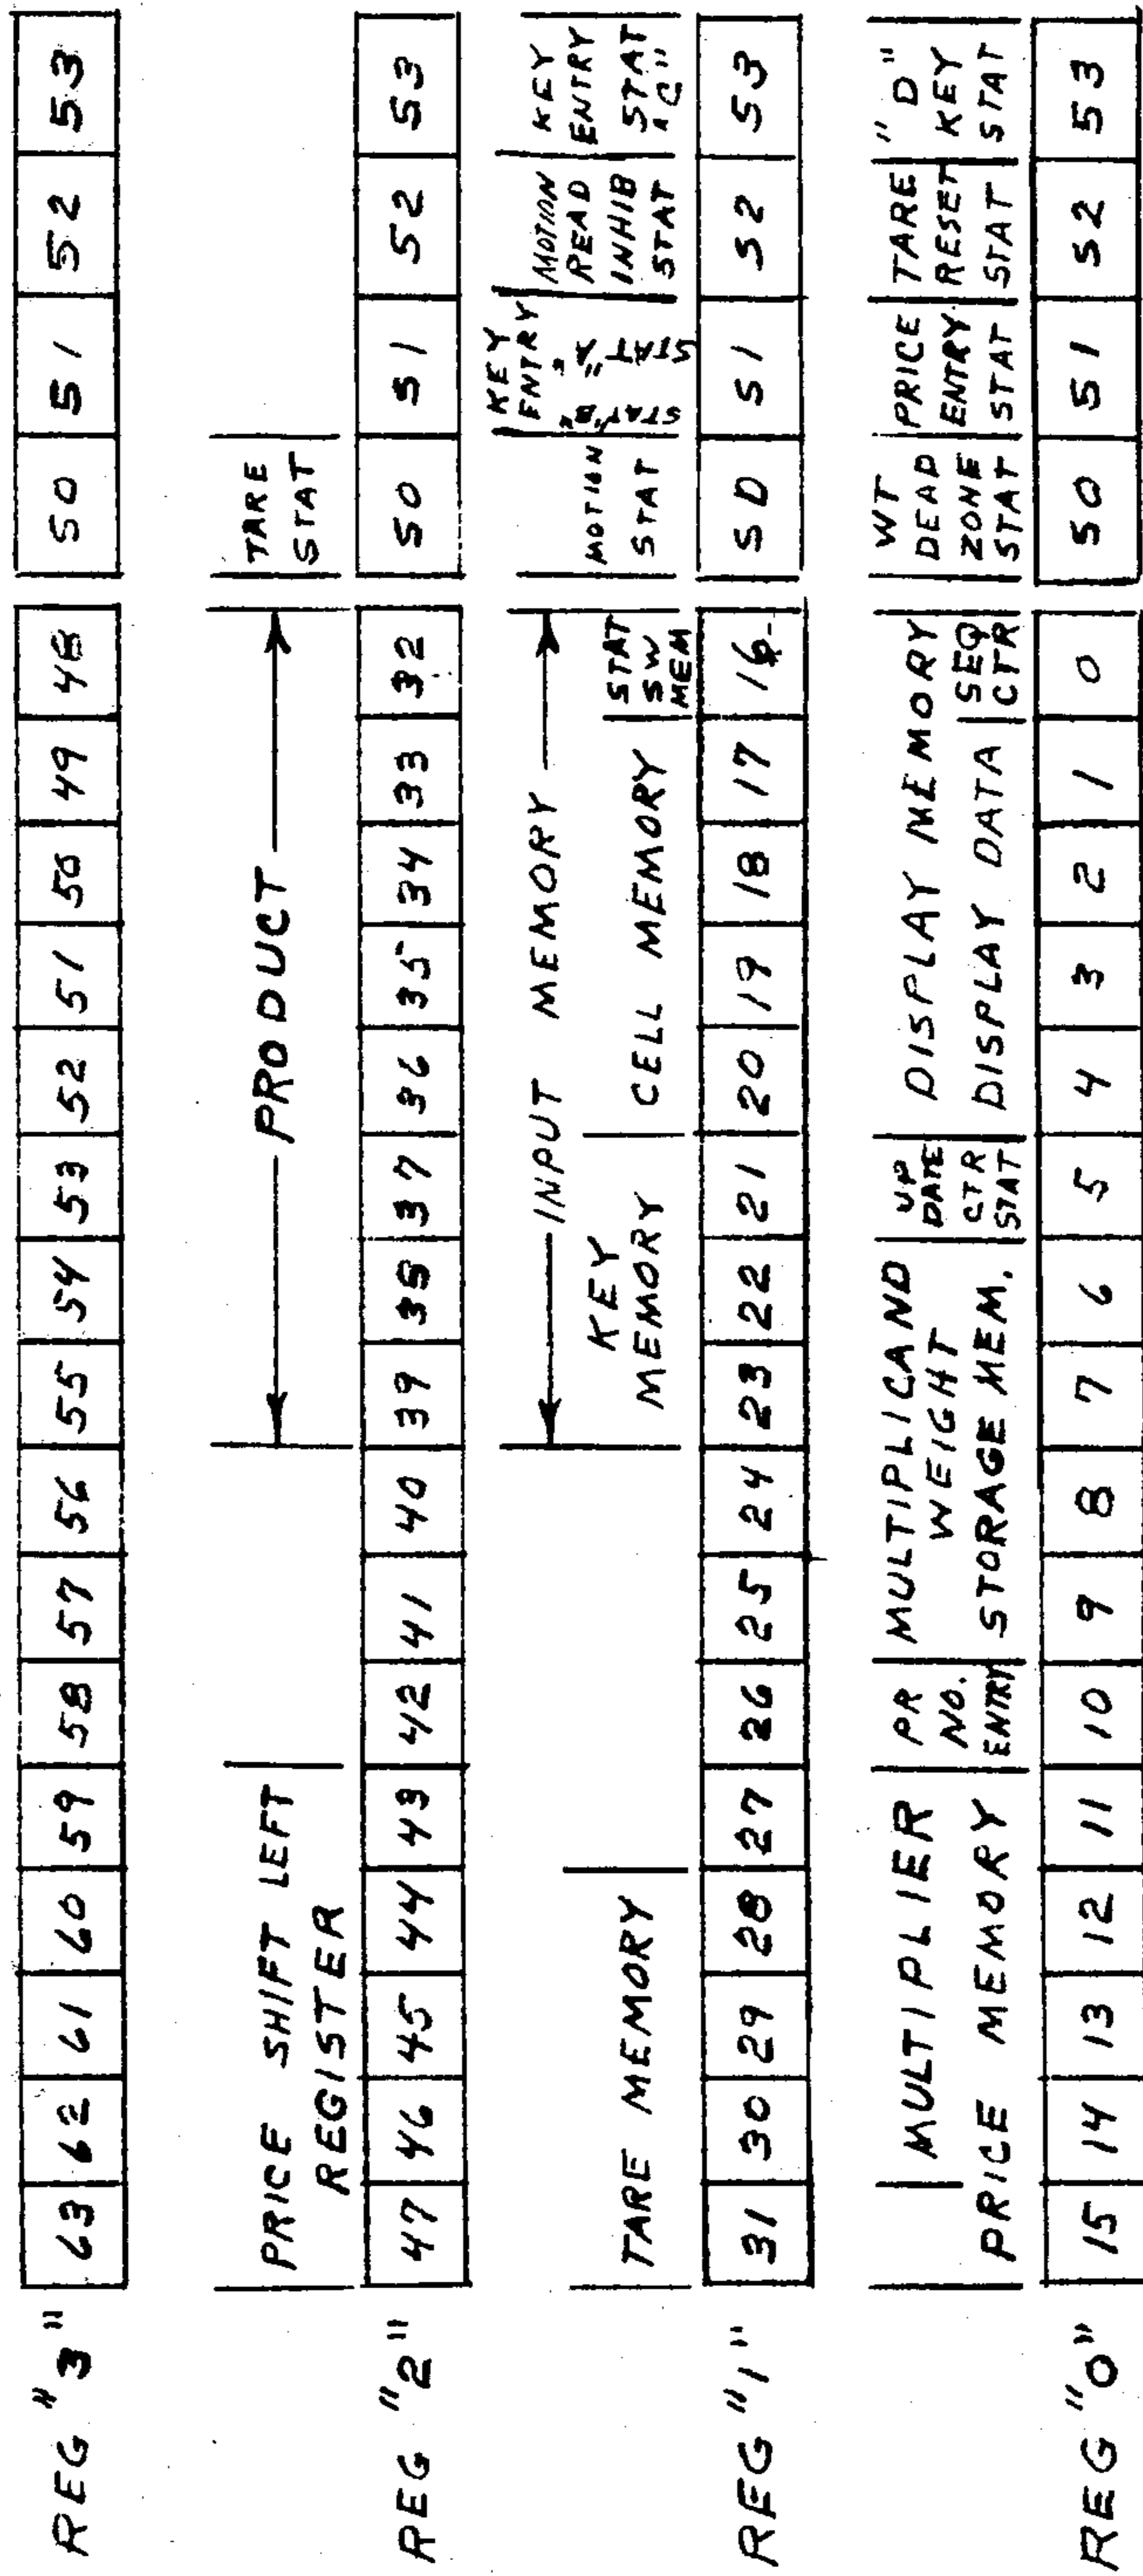 REG "3" 63 62 61 60 59 58 57 56 55 54 53 52 51 50 49 48 S0 S1 S2 S3
PRICE SHIFT LEFT
REGISTER
PRODUCT
TARE
STAT
REG "2" 47 46 45 44 43 42 41 40 39 38 37 36 35 34 33 32 S0 S1 S2 S3
TARE MEMORY
INPUT MEMORY
KEY
MEMORY
CELL MEMORY
STAT
SW
MEM
MOTION
STAT
KEY
ENTRY
STAT "B"
STAT "A"
MOTION
READ
INHIB
STAT
KEY
ENTRY
STAT
"C"
REG "1" 31 30 29 28 27 26 25 24 23 22 21 20 19 18 17 16 S0 S1 S2 S3
MULTIPLIER
PRICE MEMORY
PR
NO.
ENTRY
MULTIPLICAND
WEIGHT
STORAGE MEM.
UP
DATE
CTR
STAT
DISPLAY MEMORY
DISPLAY DATA
SEQ
CTR
WT
DEAD
ZONE
STAT
PRICE
ENTRY
STAT
TARE
RESET
STAT
"D"
KEY
STAT
REG "0" 15 14 13 12 11 10 9 8 7 6 5 4 3 2 1 0 S0 S1 S2 S3